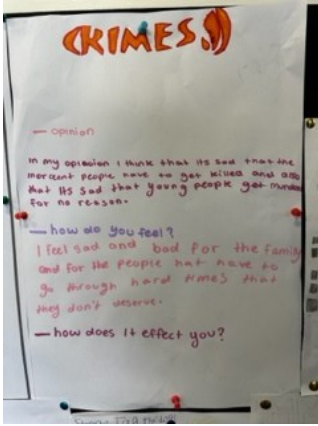 CRIMES.
— opinion
In my opiosion I think that its sad that the
mercent people have to get killed and also
that its sad that young people get
for no reason.
— how do you feel?
I feel sad and bad for the family
and for the people hat have to
go through hard times that
they don't deserve.
— how does it effect you?